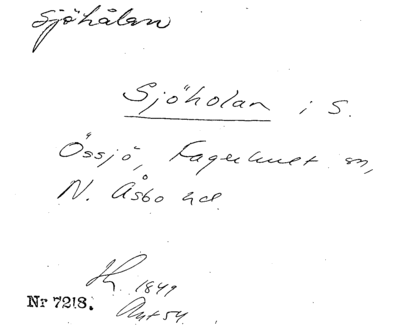 Sjöhålan
Sjöholan i S.
Össjö, Fagerhult sn,
N. Åsbo hd.
1849
Nr 7218.